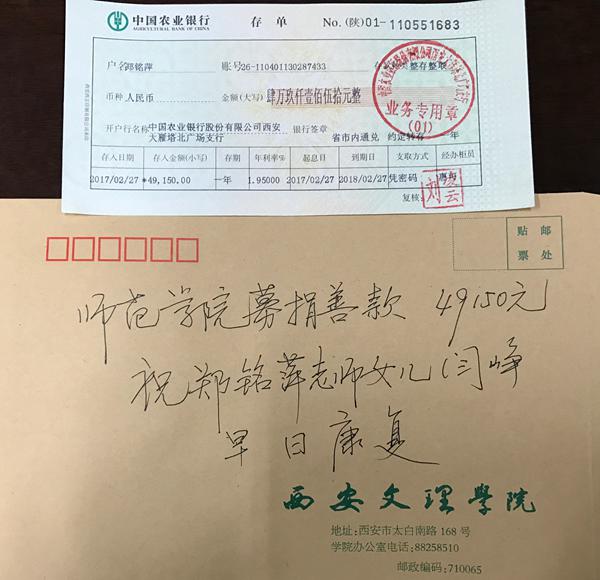 中国农业银行 存单 No.(陕)01-110551683
AGRICULTURAL BANK OF CHINA
户名 郑铭萍 账号26-110401130287433 整存整取
币种 人民币 金额(大写) 肆万玖仟壹佰伍拾元整
业务专用章
(01)
开户行名称 中国农业银行股份有限公司西安大雁塔北广场支行 银行签章 省市内通兑 约定转存 一年
存入日期 存入金额(小写) 存期 年利率% 起息日 到期日 支取方式 经办柜员
2017/02/27 *49,150.00 一年 1.95000 2017/02/27 2018/02/27 凭密码
复核:
贴邮
票处
师范学院募捐善款 49150元
祝郑铭萍老师女儿(闫峥
早日康复
西安文理學院
地址:西安市太白南路 168 号
学院办公室电话:88258510
邮政编码:710065